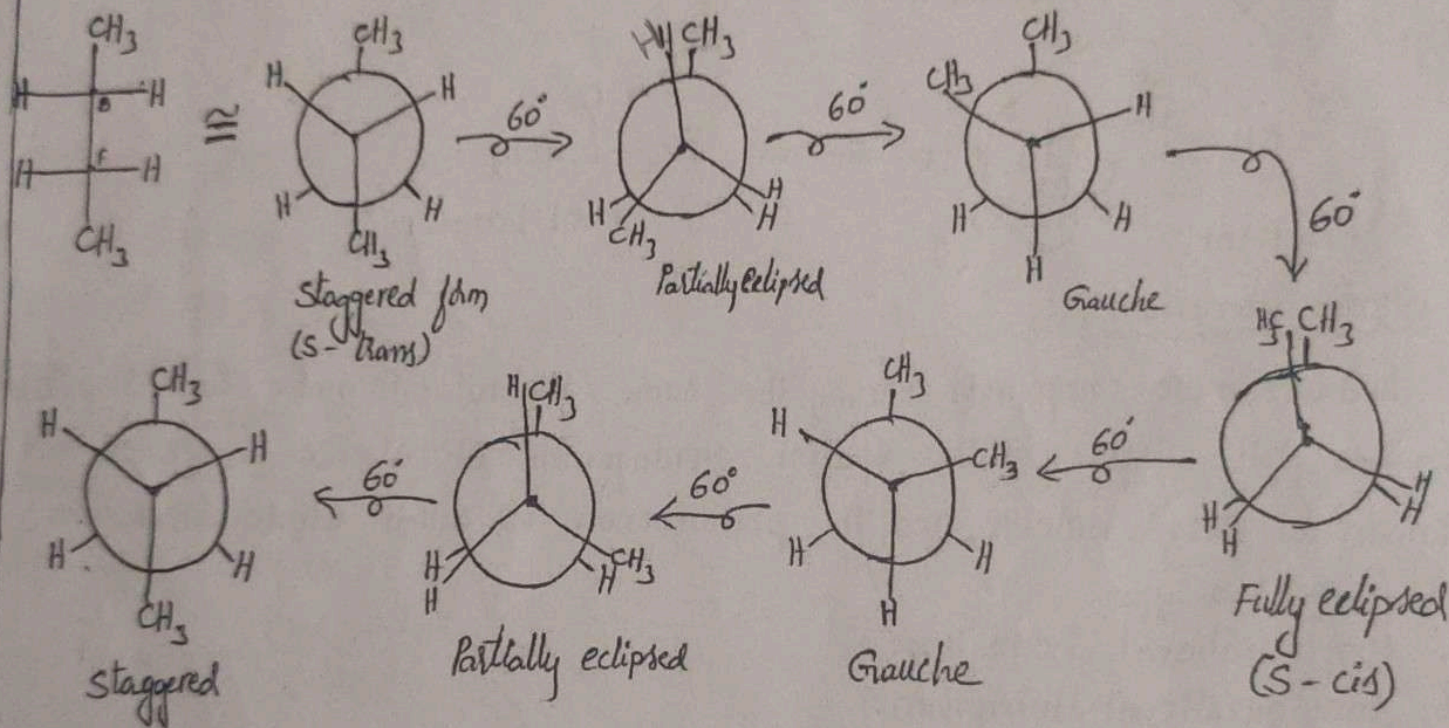 CH3
H B H
H F H
CH3
≅
CH3
H H
H H
CH3
Staggered form
(S-trans)
60°
H CH3
H H
CH3 H
Partially eclipsed
60°
CH3
CH3 H
H H
H
Gauche
60°
H3C CH3
H H
H H
Fully eclipsed
(S-cis)
60°
CH3
H CH3
H H
H
Gauche
60°
H CH3
H CH3
H H
Partially eclipsed
60°
CH3
H H
H H
CH3
Staggered